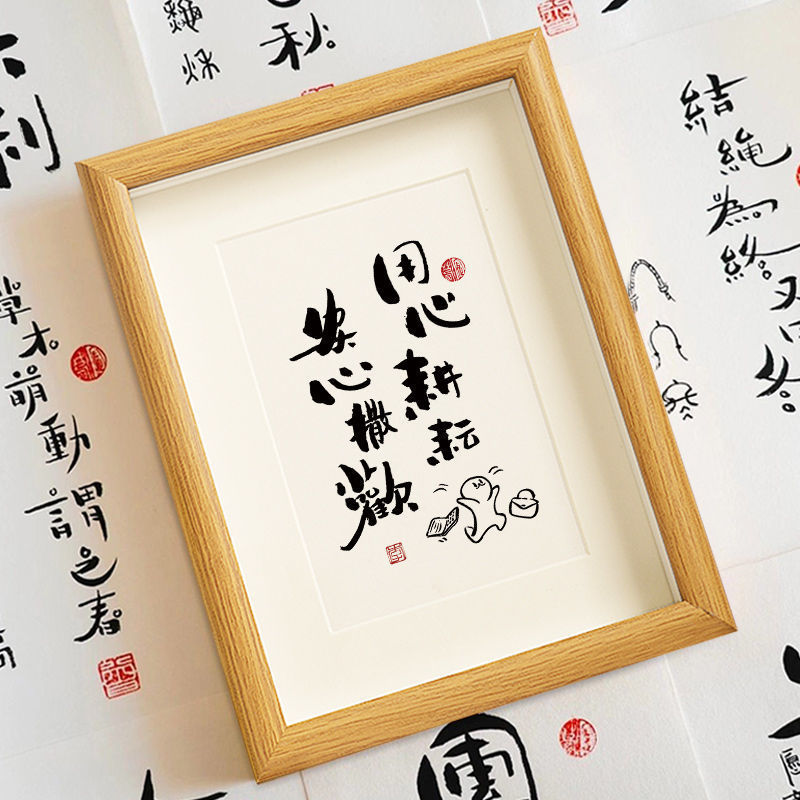 用心耕耘
安心撒歡
結繩為終
又曰冬
草木萌動
謂之春
秋
利